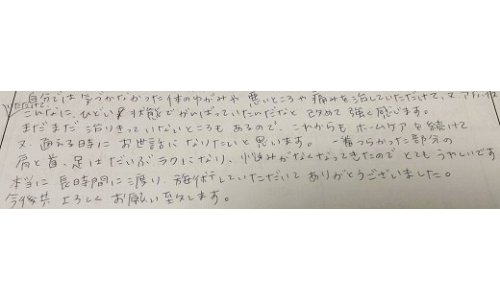 自分では気づかなかった体のゆがみや 悪いところや痛みを治していただけて、
こんなに、ひどい状態でがんばっていたんだなと改めて強く感じます。
まだまだ治りきっていないところもあるので、これからも ホームケアを続けて
又、通える時に お世話になりたいと思います。 一番つらかった部分の
肩と首、足はだいぶラクになり、悩みがなくなってきたので とてもうれしいです
本当に 長時間に渡り、施術していただいて ありがとうございました。
今後共 よろしくお願い致します。